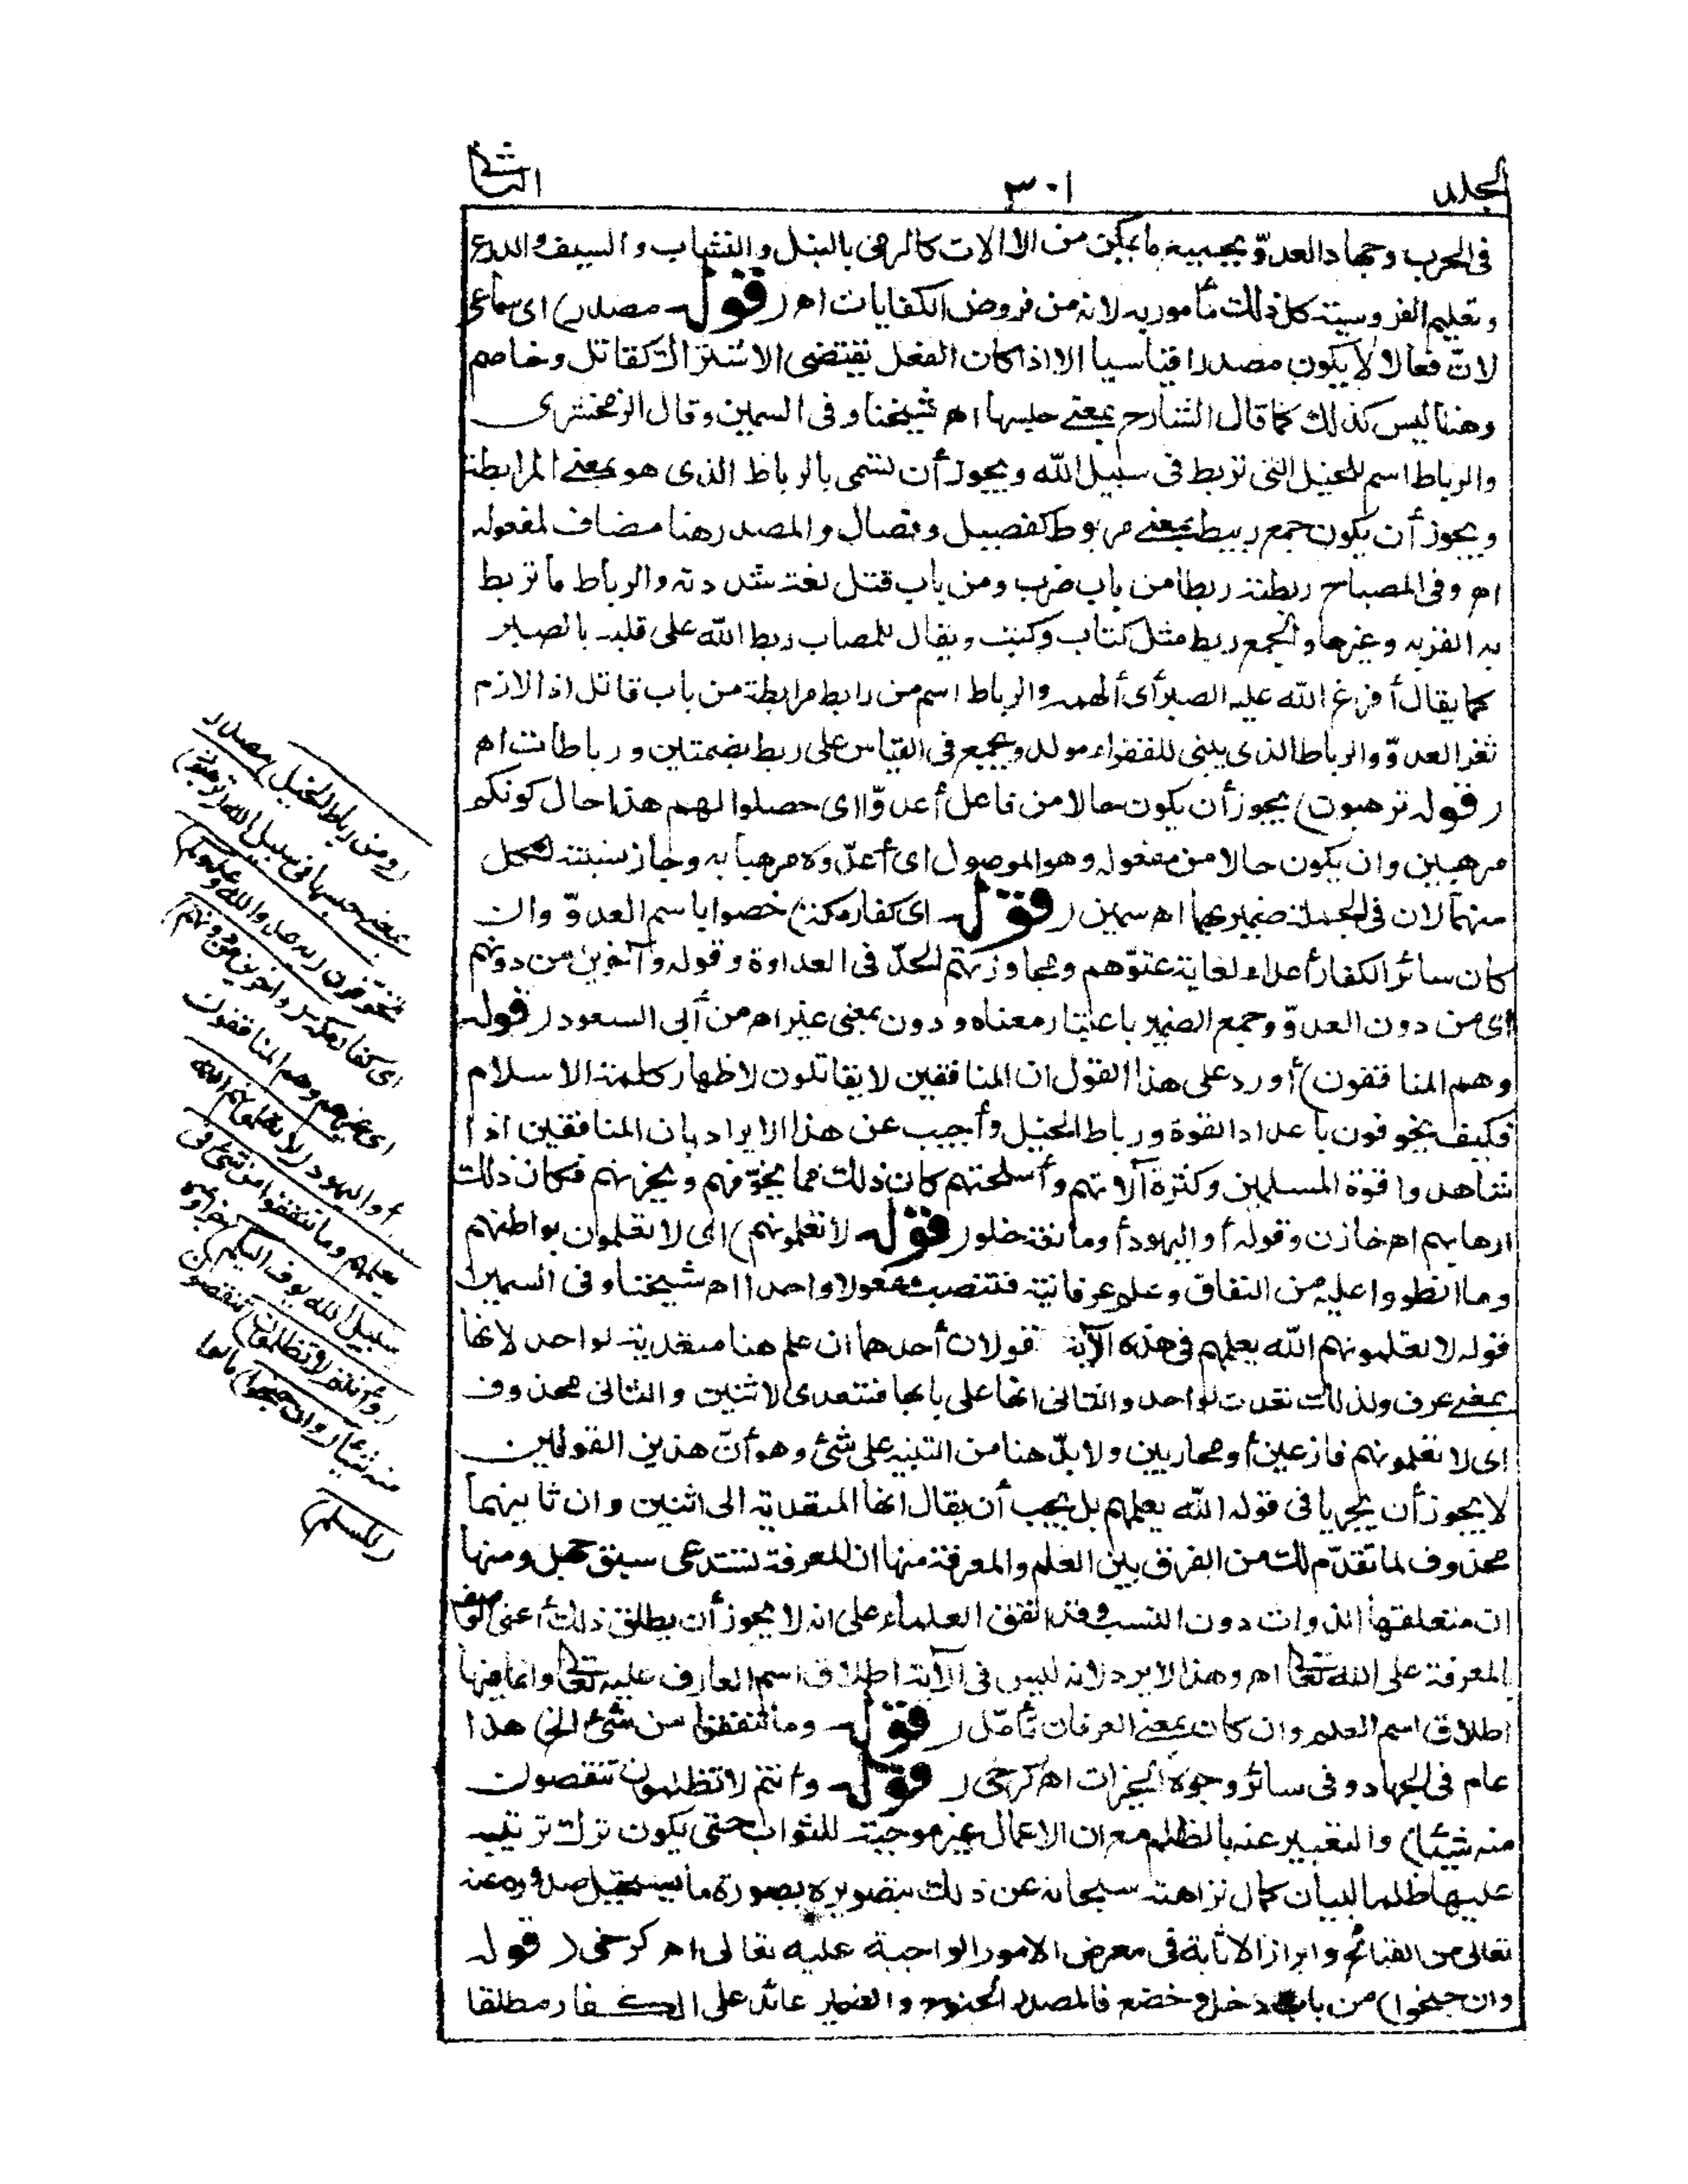 الجلد
٣٠١
الثانی
فى الحرب وجهاد العدوّ بجميع ما يمكن من الالات كالرمى بالنبل والنشاب والسيف والدرع
وتعليم الفروسية كل ذلك مأمور به لانه من فروض الكفايات اهـ (قوله مصدر) اى سماعى
لانّ فعالا لا يكون مصدرا قياسيا الا اذا كان الفعل يقتضى الاشتراك كقاتل وخاصم
وهنا ليس كذلك كما قال الشارح بمعنے حبسها اهـ شيخنا وفى السمين وقال الزمخشرى
والرباط اسم للخيل التى تربط فى سبيل الله ويجوز أن تسمى بالرباط الذى هو بمعنے المرابطة
ويجوز أن يكون جمع ربيط بمعنے مربوط كفصيل وفصال والمصدر هنا مضاف لمفعوله
اهـ وفى المصباح ربطته ربطا من باب ضرب ومن باب قتل لغة شددته والرباط ما تربط
به القربة وغيرها والجمع ربط مثل كتاب وكتب ويقال للمصاب ربط الله على قلبه بالصبر
كما يقال أفرغ الله عليه الصبر أى ألهمه والرباط اسم من رابط مرابطة من باب قاتل اذا لازم
ثغر العدوّ والرباط الذى يبنى للفقراء مولد ويجمع فى القياس على ربط بضمتين ورباطات اهـ
(قوله ترهبون) يجوز أن يكون حالا من فاعل أعدوّا اى حصلوا لهم هذا حال كونكم
مرهبين وان يكون حالا من مفعوله وهو الموصول اى أعدّوه مرهبا به وجاز نسبته لكل
منهما لان فى الجملة ضميريهما اهـ سمين (قوله اى كفار مكة) خصوا باسم العدوّ وان
كان سائر الكفار أعداء لغاية عتوّهم ومجاوزتهم الحدّ فى العداوة وقوله وآخرين من دونهم
اى من دون العدوّ وجمع الضمير باعتبار معناه ودون بمعنى غير اهـ من أبى السعود (قوله
وهم المنافقون) أورد على هذا القول ان المنافقين لا يقاتلون لاظهار كلمة الاسلام
فكيف يخوفون باعداد القوة ورباط الخيل وأجيب عن هذا الايراد بان المنافقين اذا
شاهدوا قوة المسلمين وكثرة آلاتهم وأسلحتهم كان ذلك مما يخوّفهم ويحزنهم فكان ذلك
ارهابهم اهـ خازن وقوله أو اليهود أو مانعة خلو (قوله لا تعلمونهم) اى لا تعلمون بواطنهم
وما انطووا عليه من النفاق وعلم عرفانية فتنصب مفعولا واحدا اهـ شيخنا وفى السمين
قوله لا تعلمونهم الله يعلمهم فى هذه الآية قولان أحدهما ان علم هنا متعدية لواحد لانها
بمعنے عرف ولذلك تعدت لواحد والثانى انها على بابها فتتعدى لاثنين والثانى محذوف
اى لا تعلمونهم فازعين أو محاربين ولا بدّ هنا من التنبيه على شئ وهو أنّ هذين القولين
لا يجوز أن يجريا فى قوله الله يعلمهم بل يجب أن يقال انها المتعدية الى اثنين وان ثانيهما
محذوف لما تقدّم لك من الفرق بين العلم والمعرفة منها ان المعرفة تستدعى سبق جهل ومنها
ان متعلقها الذوات دون النسب وقد اتفق العلماء على انه لا يجوز أن يطلق ذلك أعنى الوصف
بالمعرفة على الله تعالى اهـ وهذا لا يرد لانه ليس فى الآية اطلاق اسم العارف عليه تعالى وانما فيها
اطلاق اسم العلم وان كان بمعنے العرفان تأمّل (قوله وما تنفقوا من شئ الخ) هذا
عام فى الجهاد وفى سائر وجوه الخيرات اهـ كرخى (قوله وأنتم لا تظلمون تنقصون
منه شيئا) والتعبير عنه بالظلم مع ان الاعمال غير موجبة للثواب حتى يكون ترك ترتيبه
عليها ظلما لبيان كمال نزاهته سبحانه عن ذلك بتصويره بصورة ما يستحيل صدوره عنه
تعالى من القبائح وابراز الاثابة فى معرض الامور الواجبة عليه تعالى اهـ كرخى (قوله
وان جنحوا) من باب دخل وخضع فالمصدر الجنوح والضمير عائد على الكفار مطلقا
(ومن رباط الخيل) مصدر
بمعنے حبسها فى سبيل الله (ترهبون)
تخوّفون (به عدو الله وعدوكم)
اى كفار مكة (وآخرين من دونهم)
اى غيرهم وهم المنافقون
أو اليهود (لا تعلمونهم الله
يعلمهم وما تنفقوا من شئ فى
سبيل الله يوف اليكم) جزاؤه
(وأنتم لا تظلمون) تنقصون
منه شيئا (وان جنحوا) مالوا
(للسلم)